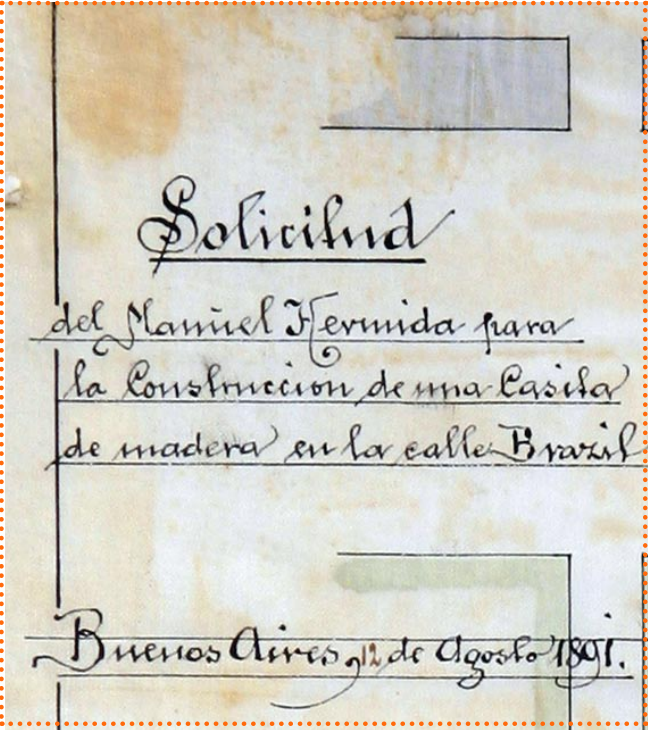 Solicitud
del Manuel Hermida para
la Construccion de una Casita
de madera en la calle Brazil
Buenos Aires, 12 de Agosto 1891.